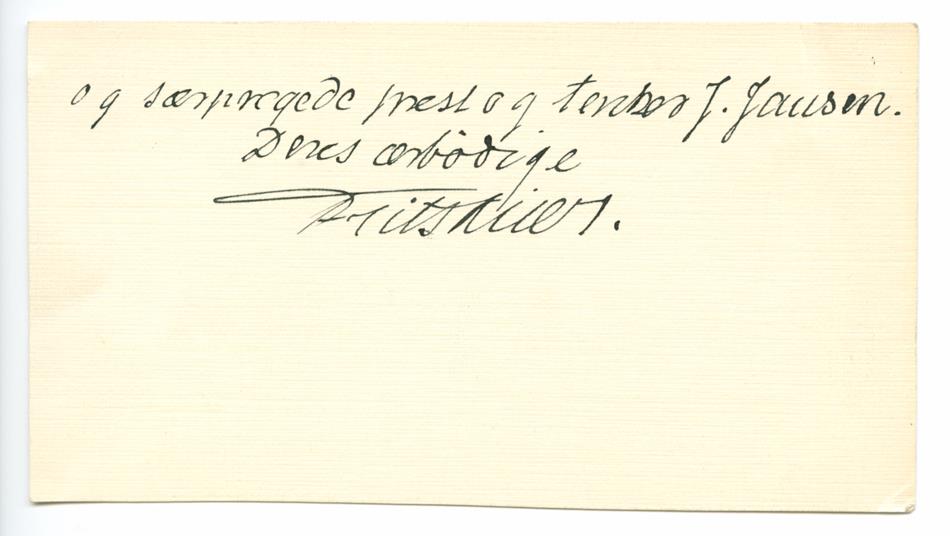 og særprægede prest og tenker J. Jansen.
Deres ærbødige
Fritskiær.